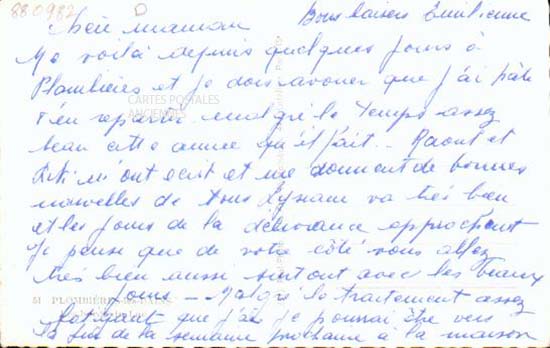 880982
Chère maman Bons baisers Emilienne
Me voilà depuis quelques jours à
Plombières et je dois avouer que j'ai hâte
d'en repartir malgré le temps assez
beau cette année qu'il fait. Raoul et
m'ont écrit et me donnent de bonnes
nouvelles de tous va très bien
et les jours de la délivrance approchent
je pense que de votre côté vous allez
très bien aussi surtout avec les beaux
jours - Malgré le traitement assez
que j'ai je pourrai être vers
la fin de la semaine prochaine à la maison
CARTES POSTALES
ANCIENNES